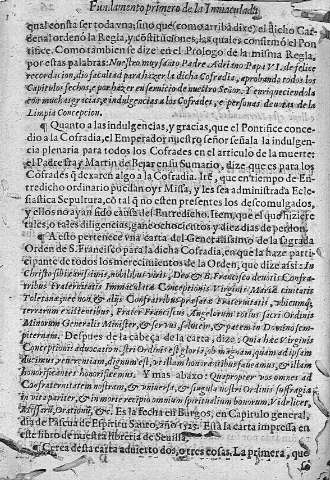 Fundamento primero de la Inmaculada
qual consta ser toda vna; sino que (como arriba dixe) el dicho Car-
denal ordenò la Regla, y cõstituciones, las quales confirmò el Pon-
tifice. Como tambien se dize en el Prologo de la misma Regla,
por estas palabras: Nuestro muy santo Padre Adriano Papa VI. de felice
recordacion, dio facultad para hazer la dicha Cofradia, aprobando todos los
Capitulos fechos, e por hazer en servicio de nuestro Señor. Y enriqueciendola
con muchas gracias, e indulgencias a los Cofrades, e personas devotas de la
Limpia Concepcion.
¶ Quanto a las indulgencias, y gracias, que el Pontifice conce-
dio a la Cofradia, el Emperador nuestro señor señala la indulgen-
cia plenaria para todos los Cofrades en el articulo de la muerte:
el Padre fray Martin de Bejar en su Sumario, dize que es para los
Cofrades q̃ dexaren algo a la Cofradia. Itẽ, que en tiempo de En-
tredicho ordinario puedan oyr Missa, y les sea administrada Ecle-
siastica Sepultura, cõ tal q̃ no esten presentes los descomulgados,
y ellos no ayan sido causa del Entredicho. Item, que el que hiziere
tales, o tales diligencias, gane ochocientos y diez dias de perdon.
¶ A esto pertenece vna carta del Generalissimo de la sagrada
Orden de S. Francisco para la dicha Cofradia, en que la haze parti-
cipante de todos los merecimientos de la Orden, que dize assi: In
Christo sibi charissimis, nobilibus viris, Deo & B. Francisco devotis Confra-
tribus Fraternitatis Immaculatæ Conceptionis Virginis Mariæ civitatis
Toletanæ; nec non, & alijs Confratribus præfatæ Fraternitatis, vbicumq;
terrarum existentibus, Frater Franciscus Angelorum totius sacri Ordinis
Minorum Generalis Minister, & servus, salutem, & pacem in Domino sem-
piternam. Despues de la cabeça de la carta, dize: Quia hæc Virginis
Conceptionis advocatio nostri Ordinis est gloria, ob magnam, quam ad ipsam
ducimus reverentiam, dignum est, vt illam honorantibus faveamus, & illam
honorificantes honorificemus. Y mas abaxo: Quapropter vos omnes ad
Confraternitatem nostram, & vniversa, & singula nostri Ordinis suffragia
in vita pariter, & in morte recipio omnium spiritualium bonorum, Videlicet,
Missarũ, Orationũ, &c. Es la fecha en Burgos, en Capitulo general,
dia de Pascua de Espiritu Santo, año 1523. Està la carta impressa en
este libro de nuestra libreria de Sevilla.
¶ Cerca desta carta advierto dos, o tres cosas. La primera, que